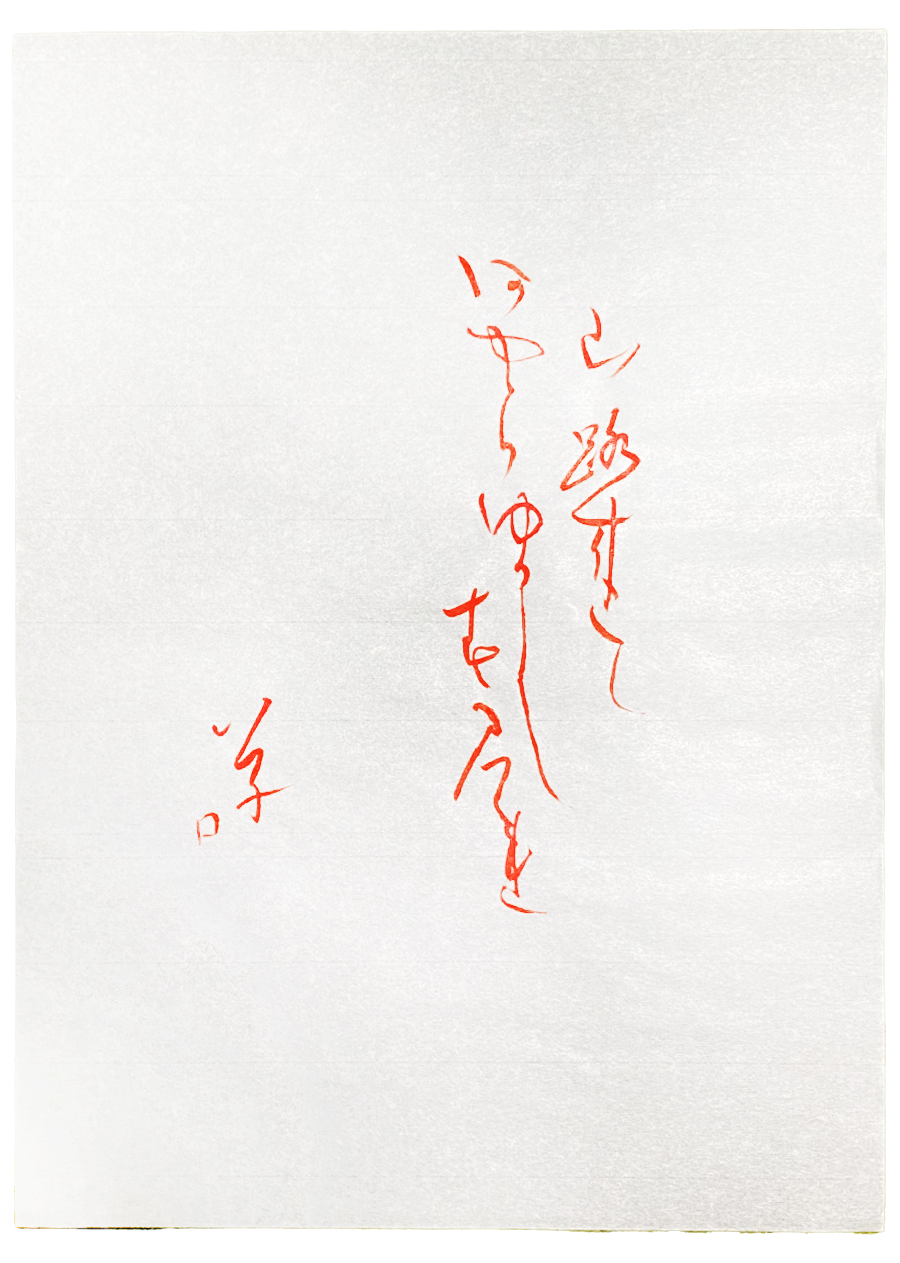 山路来て
何やらゆかし
すみれ
草